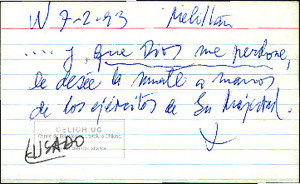 N 7-2-93 Melillán
.... y, que Dios me perdone,
le desée la muerte a manos
de los ejércitos de Su Majestad.
CELICH UC
USADO